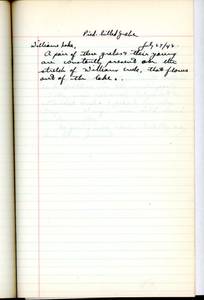 Pied-billed grebe
Williams Lake, July 27/42.
A pair of these grebes & their young
are constantly present on the
stretch of Williams creek, that flows
out of the lake.